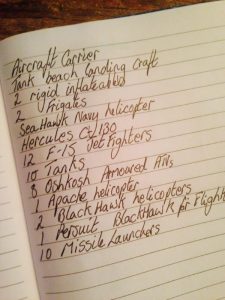 Aircraft Carrier
Tank beach landing craft
2 rigid inflateables
2 frigates
SeaHawk Navy helicopter
Hercules C-130
12 F-15 Jet Fighters
10 Tanks
8 Oshkosh Armoured ATVs
1 Apache helicopter
2 BlackHawk helicopters
1 Persuit, BlackHawk for Flight
10 Missile Launchers